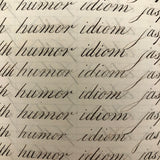 humor idiom jas
lth humor idiom jas
lth humor idiom jas
lth humor idiom jas
lth humor idiom jas
lth humor idiom jas
th humor idiom jas